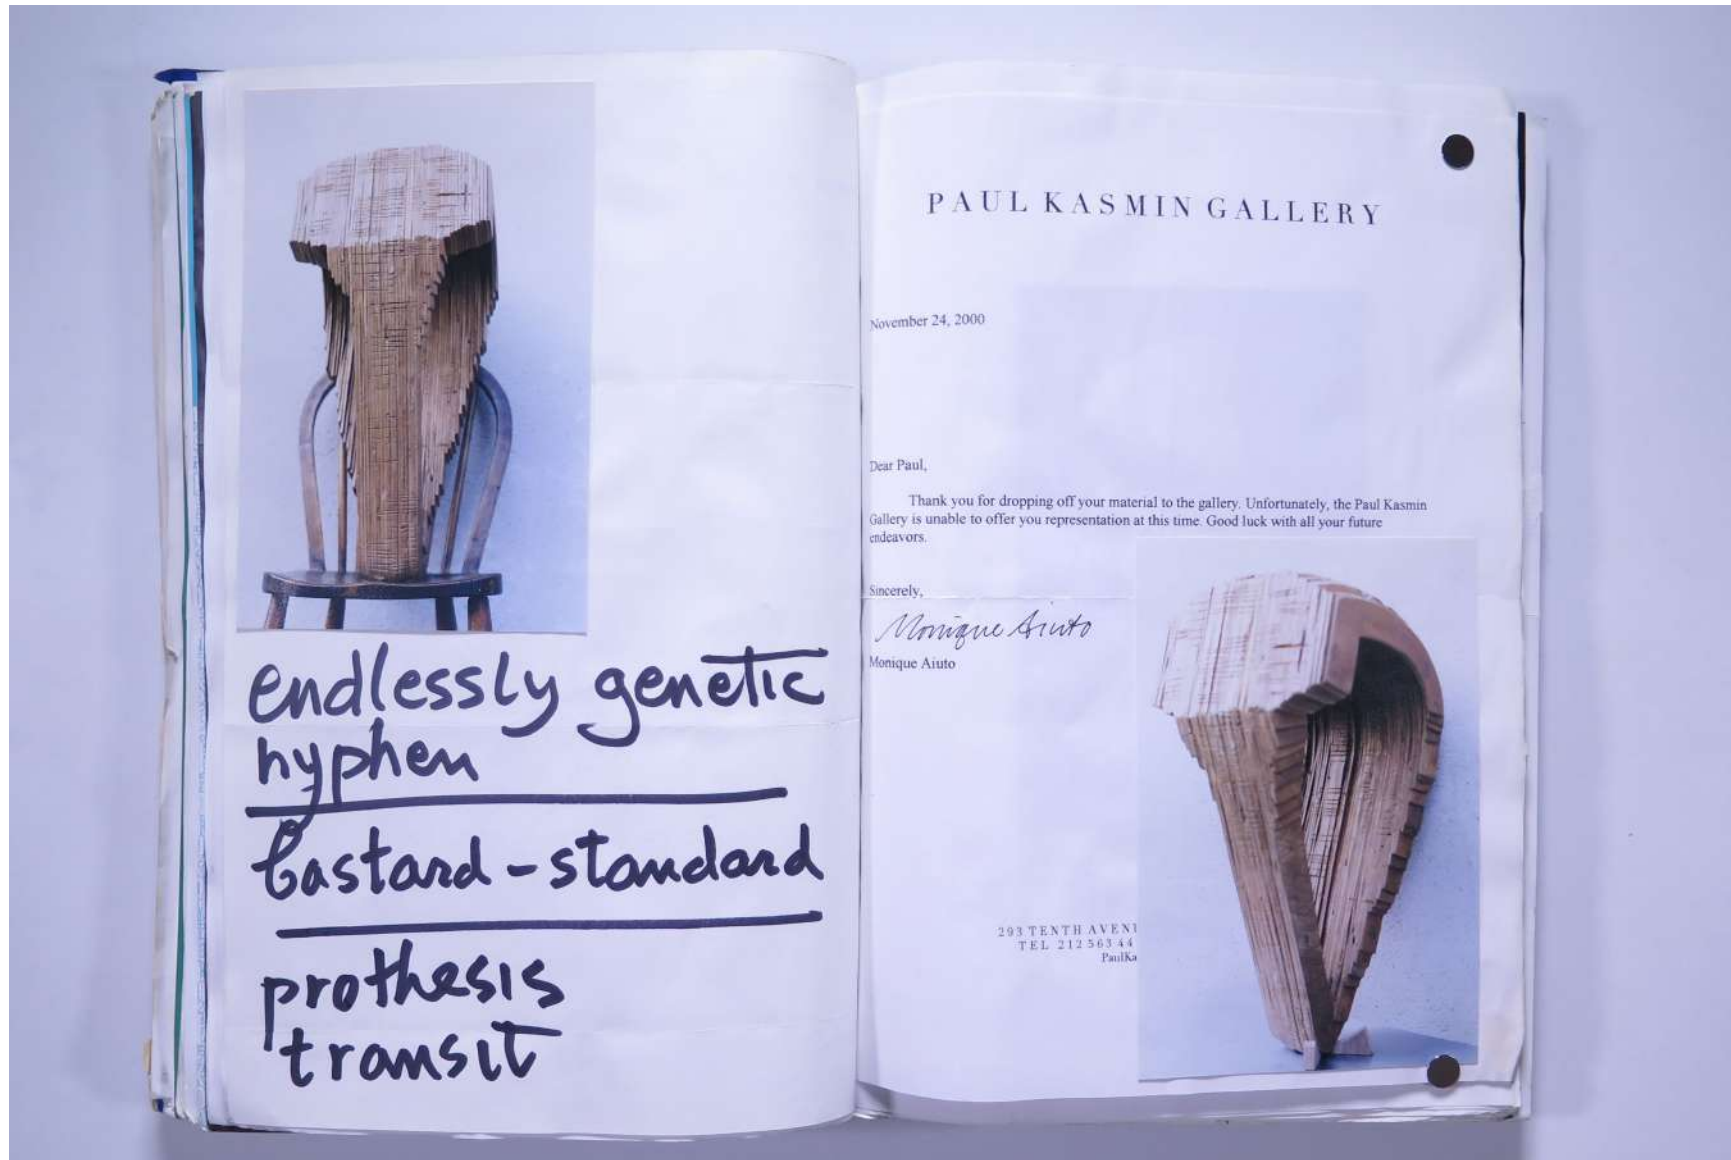 endlessly genetic
hyphen
bastard-standard
prothesis
transit
PAUL KASMIN GALLERY
November 24, 2000
Dear Paul,
Thank you for dropping off your material to the gallery. Unfortunately, the Paul Kasmin
Gallery is unable to offer you representation at this time. Good luck with all your future
endeavors.
Sincerely,
Monique Aiuto
Monique Aiuto
293 TENTH AVENU
TEL 212 563 44
PaulKa